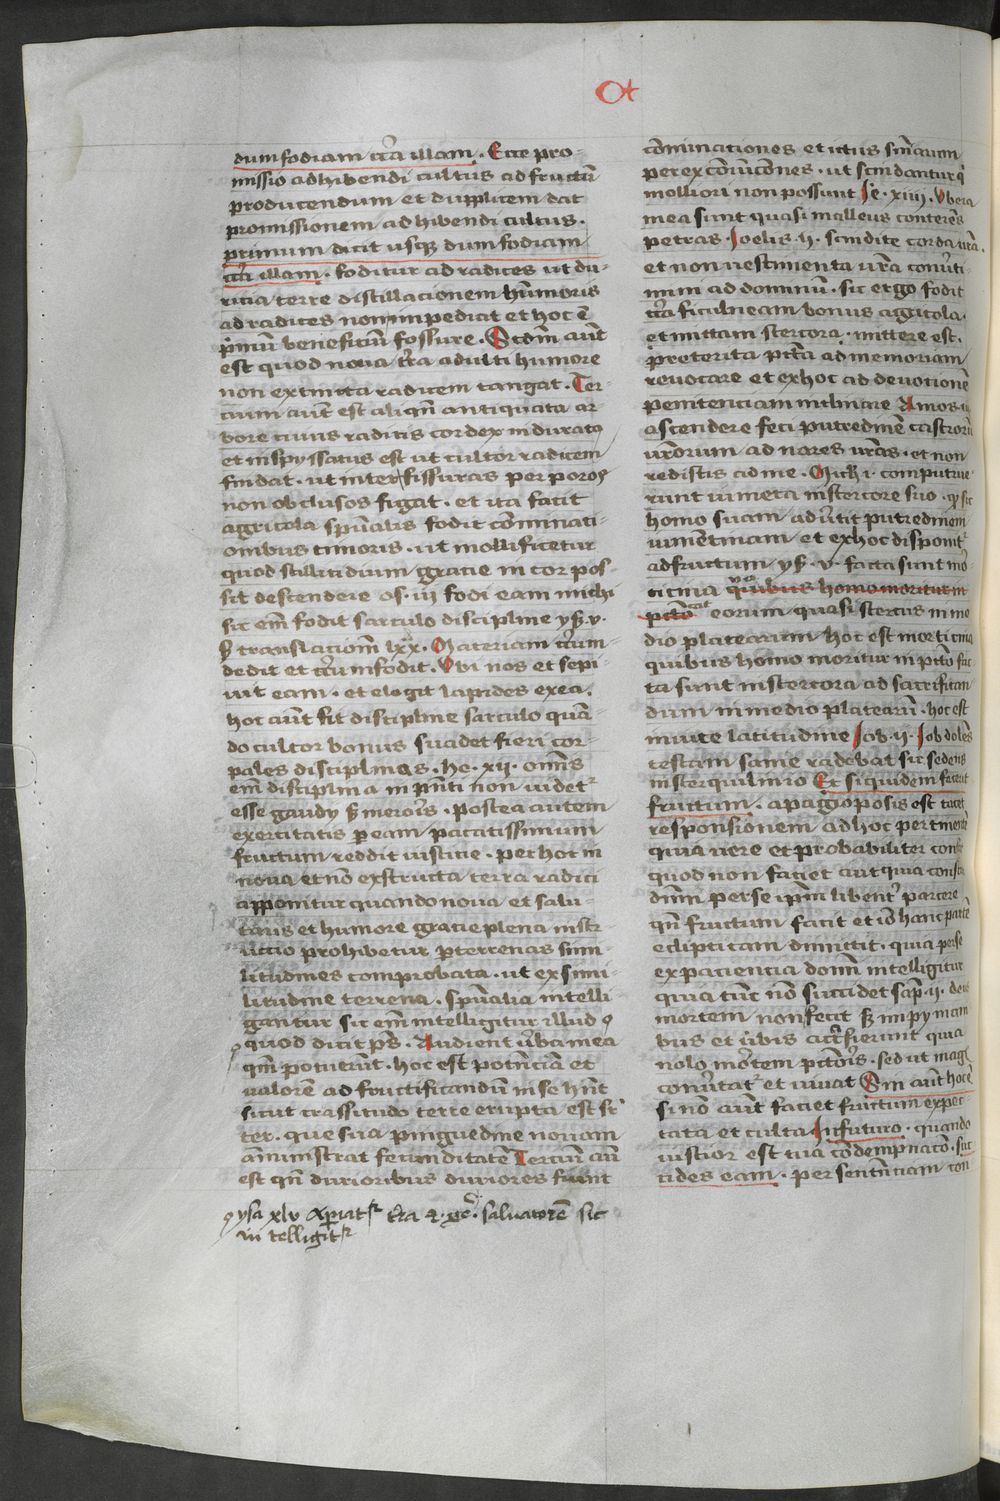 dum fodiam circa illam . Ecce pro-
missio adhibendi cultus ad fructū
producendum et dupplicem dat
promissionem adhibendi cultus .
primum dicit usqȝ dum fodiam
circa illam . foditur ad radices ut du-
ricia terre distillacionem humoris
ad radices non impediat et hoc ē
primū beneficiū fossure . Scdm aut
est quod noua tra adulti humore
non extincta radicem tangat . Ter-
cium aut est aliqn antiquata ar
bore cuius radicis cordex induratꝰ
et inspyssatus est ut cultor radicem
findat . ut inter fissuras per poros
non obclusos fugat . et ita facit
agricola spualis fodit cominati-
onibus timoris . ut mollificetur
quod stillicidium gracie in cor pos-
sit descendere os . iii fodi eam michi
sic em fodit sarculo discipline ys . v .
translacionem lxx . Materiam circum
dedit et circumfodit . Vbi nos et sepi-
uit eam . et elegit lapides ex ea .
hoc aut fit discipline sarculo quā
do cultor bonus suadet fieri cor-
pales disciplinas . he . xii . omnis
em disciplina in pnti non uidetr
esse gaudy meroris . postea autem
exercitatis per eam pacatissimum
fructum reddit iusticie . per hoc in
noua et nō exstructa terra radici
apponitur quando noua et salu-
taris et humore gracie plena instr
uctio prohibetur terrenas simi-
litudines comprobata . ut ex simi-
litudine terrena . spualia intelli
gantur sic em intelligitur illud
quod dicit ps . Audient uerba mea
qm potuerunt . hoc est potenciā et
ualorē ad fructificandū in se hnt
sicut crassitudo terre erupta est sr
ter . que sua pinguedine nouam
aministrat fecunditatē Tercium au
est qn durioribus duriores fiunt
ysa xlv Apiatr tra &  salvatorē sic
in telligitr
cominationes et ictus
per excoicones . ut scindantur
molliori non possunt Je . xiiii . Vbera
mea sunt quasi malleus conterēs
petras . Joelis . ii . scindite corda ura .
et non uestimenta ura conuerti-
mini ad dominū . sic ergo fodit
circa ficulneam bonus agricola .
et mittam stercora . mittere est .
preterita pctā ad memoriam
reuocare et ex hoc ad deuotionē
penitenciam inclinare Amos
ascendere feci putredinē castrorū
urorum ad nares uras . et non
redistis ad me . Mich i . computrue-
runt iumenta in stercore suo . sic
homo suam aduertit putredinem
et ex hoc disponitr
ad fructum ys . v . facta sunt mor
ticinia quibus homo moritur in
pctō eorum quasi stercus in me
dio platearum hoc est morticinia
quibus homo moritur in pctō fac
ta sunt in stercora ad sacrifican
dum in medio platearū . hoc est
in uite latitudine Job . ii . Job dolēs
testam sanie radebat sic sedens
in sterquilinio Et siquidem fecerit
fructum . apagioposis est tacet
responsionem ad hoc pertinentē
quia uere et probabiliter
quod non faciet aut quia
dnm per se ipm libenter parcere
qn fructum facit et iō hanc partē
eclipticam dimittit . quia per se
ex paciencia domini intelligitur
quia tunc nō succidet sap . ii . deus
mortem non fecit impy mani
bus et uerbis accersierunt quia
nolo mortem pctoris . sed ut magis
conuertatr et uiuat Sin aut hoc ē
si nō aut faciet fructum expec-
tata et culta In futuro . quando
iustior est tua condempnacō . suc
cides eam . per sentenciam con